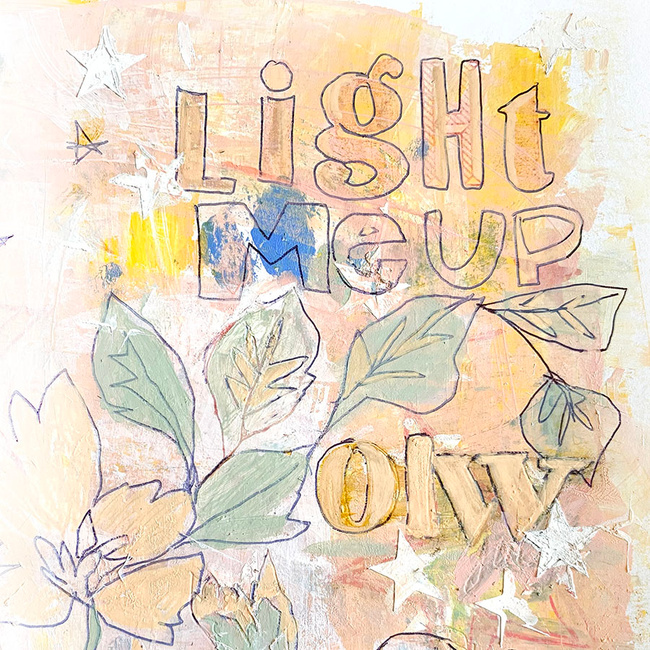 LigHt
MeUP
olw